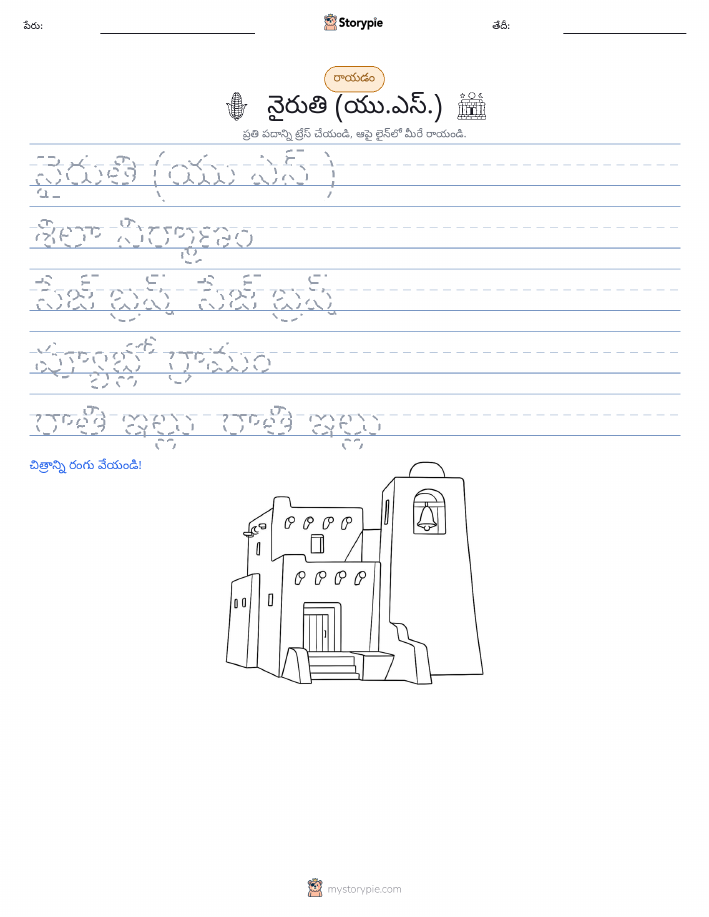 పేరు:
Storypie
తేదీ:
రాయడం
నైరుతి (యు.ఎస్.)
ప్రతి పదాన్ని ట్రేస్ చేయండి, ఆపై లైన్‌లో మీరే రాయండి.
నైరుతి (యు ఎస్ )
శిలా నిర్మాణం
సేజ్ బ్రష్ సేజ్ బ్రష్
ప్యూబ్లో గ్రామం
రాతి ఇల్లు రాతి ఇల్లు
చిత్రాన్ని రంగు వేయండి!
mystorypie.com